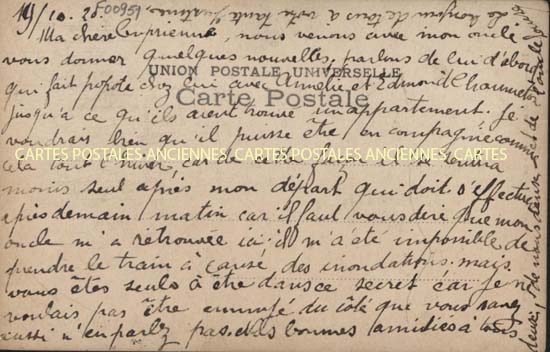 19/10.20. F00959
Ma chère Cyprienne, nous venons avec mon oncle
vous donner quelques nouvelles. parlons de lui d'abord
UNION POSTALE UNIVERSELLE
qui fait popote chez lui avec Amélie et Edmond
Carte Postale
jusqu'à ce qu'ils aient trouvé un appartement. Je
voudrais bien qu'il puisse être en compagnie comme
cela tout l'hiver, car de cette façon il
CARTES POSTALES ANCIENNES, CARTES POSTALES ANCIENNES, CARTES POSTALES ANCIENNES
moins seul après mon départ qui doit s'effectuer
après demain matin car il faut vous dire que mon
oncle m'a retrouvée ici; il m'a été impossible de
prendre le train à cause des inondations. mais
vous êtes seuls à être dans ce secret car je ne
voulais pas être ennuyé du côté que vous savez
aussi n'en parlez pas. des bonnes amitiés à tous
de tous à votre tante